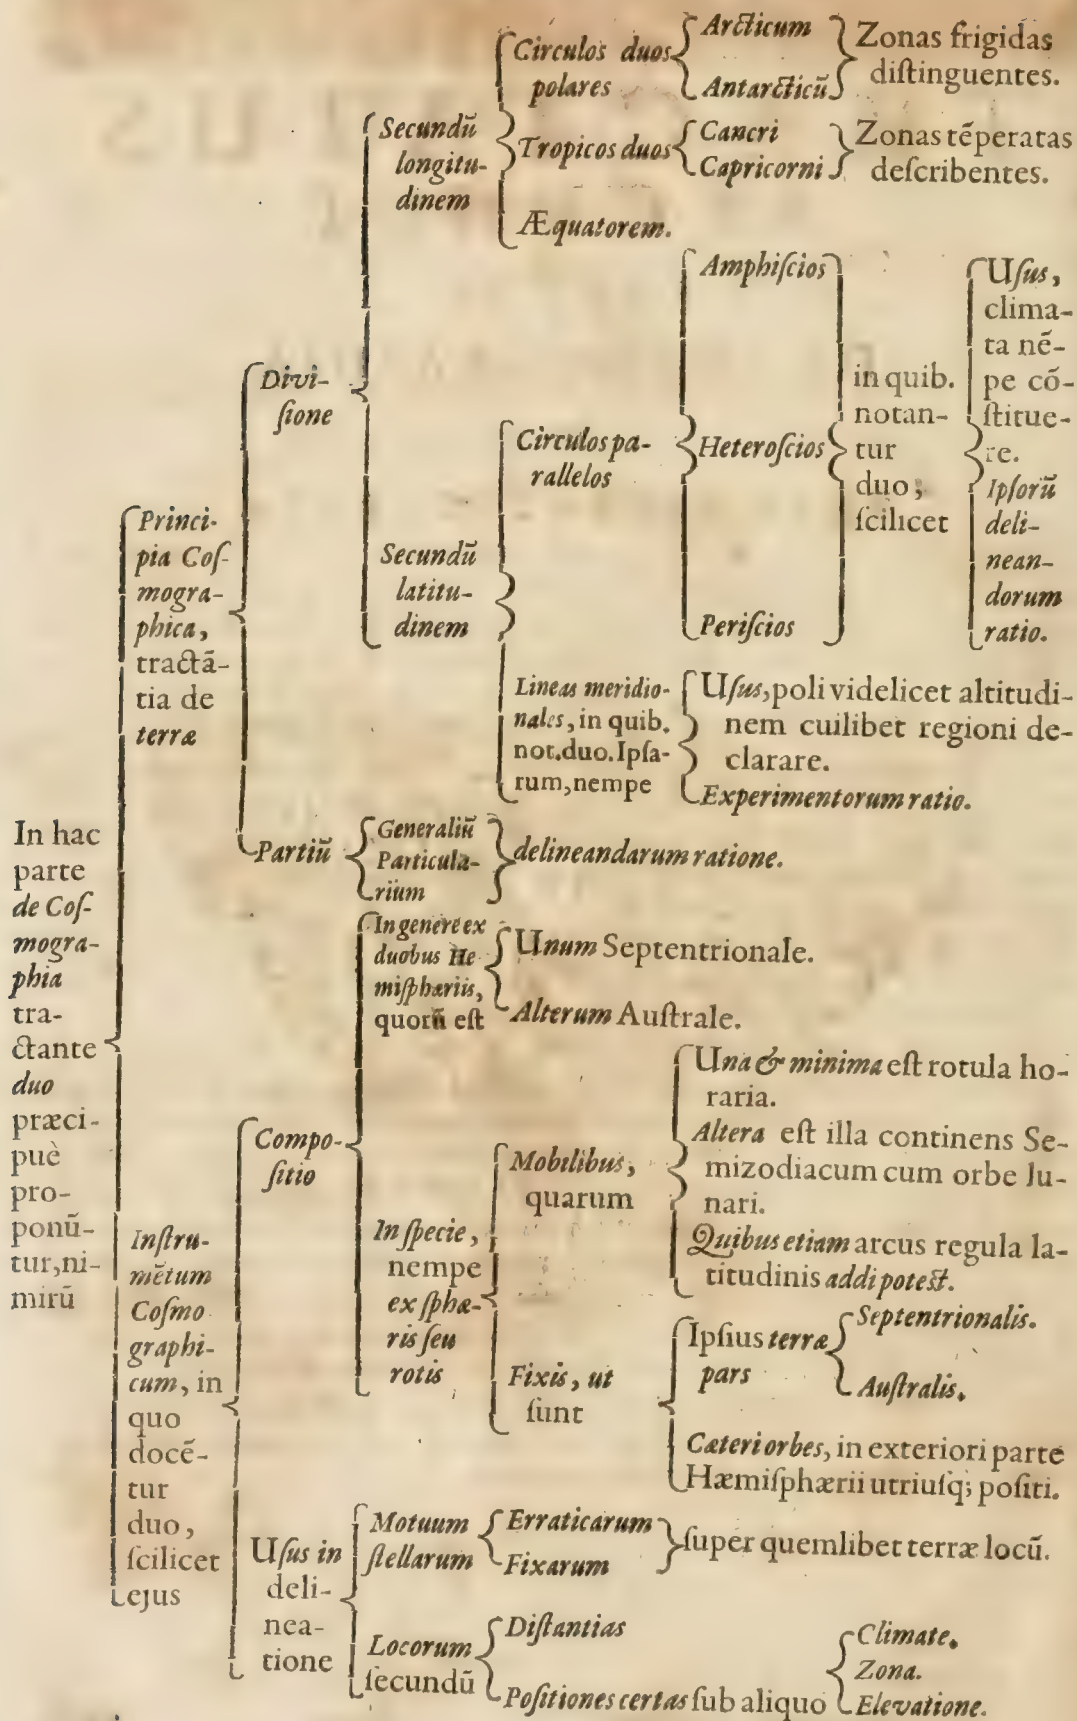 In hac
parte
de Coſ-
mogra-
phia
tra-
ctante
duo
præci-
puè
pro-
ponū-
tur, ni-
mirū
Princi-
pia Coſ-
mogra-
phica,
tractā-
tia de
terræ
Divi-
ſione
Secundū
longitu-
dinem
Circulos duos
polares
Arcticum
Antarcticū
Zonas frigidas
diſtinguentes.
Tropicos duos
Cancri
Capricorni
Zonas tēperatas
deſcribentes.
Æquatorem.
Secundū
latitu-
dinem
Circulos pa-
rallelos
Amphiſcios
Heteroſcios
Periſcios
in quib.
notan-
tur
duo;
ſcilicet
Uſus,
clima-
ta nē-
pe cō-
ſtitue-
re.
Ipſorū
deli-
nean-
dorum
ratio.
Lineas meridio-
nales, in quib.
not. duo. Ipſa-
rum, nempe
Uſus, poli videlicet altitudi-
nem cuilibet regioni de-
clarare.
Experimentorum ratio.
Partiū
Generaliū
Particula-
rium
delineandarum ratione.
Inſtru-
mētum
Coſmo
graphi-
cum, in
quo
docē-
tur
duo,
ſcilicet
ejus
Compo-
ſitio
In genere ex
duobus He
miſphæriis,
quorū eſt
Unum Septentrionale.
Alterum Auſtrale.
In ſpecie,
nempe
ex ſphæ-
ris ſeu
rotis
Mobilibus,
quarum
Una & minima eſt rotula ho-
raria.
Altera eſt illa continens Se-
mizodiacum cum orbe lu-
nari.
Quibus etiam arcus regula la-
titudinis addi poteſt.
Fixis, ut
ſunt
Ipſius terræ
pars
Septentrionalis.
Auſtralis.
Cæteri orbes, in exteriori parte
Hæmiſphærii utriuſq; poſiti.
Uſus in
deli-
nea-
tione
Motuum
ſtellarum
Erraticarum
Fixarum
ſuper quemlibet terræ locū.
Locorum
ſecundū
Diſtantias
Poſitiones certas ſub aliquo
Climate.
Zona.
Elevatione.